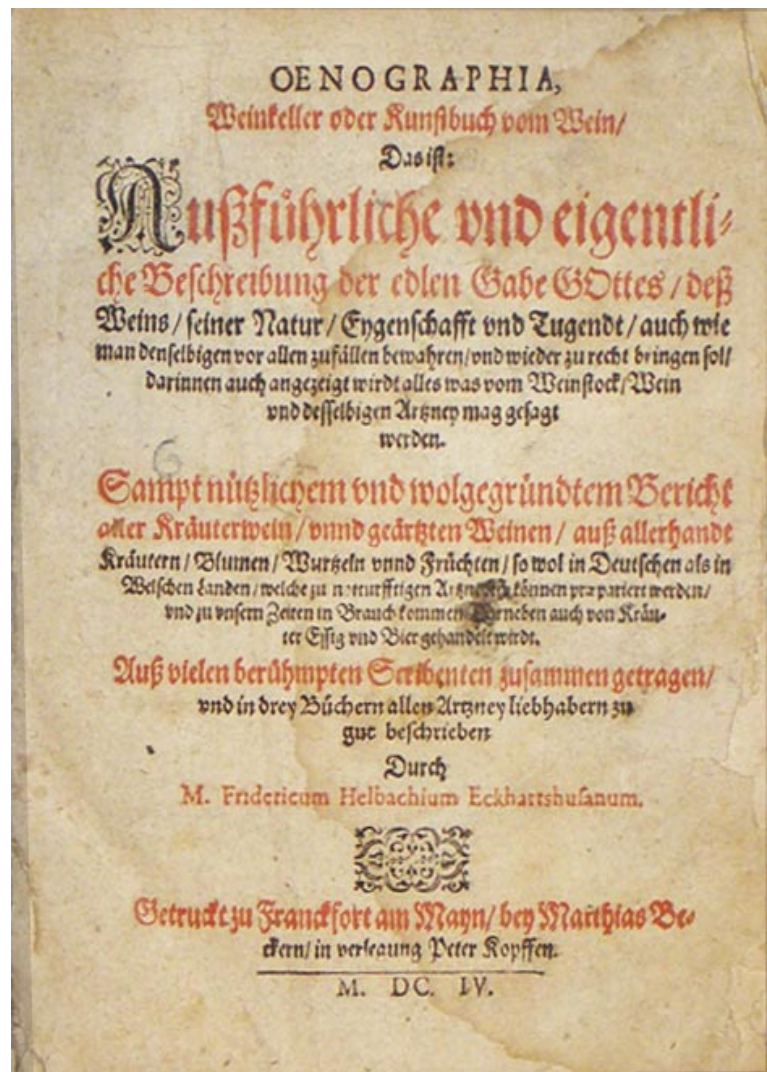 OENOGRAPHIA,
Weinkeller oder Kunstbuch vom Wein/
Das ist:
Außführliche vnd eigentli-
che Beschreibung der edlen Gabe GOttes / deß
Weins / seiner Natur / Eygenschafft vnd Tugendt / auch wie
man denselbigen vor allen zufällen bewahren / vnd wieder zu recht bringen sol /
darinnen auch angezeigt wirdt alles was vom Weinstock / Wein
vnd desselbigen Artzney mag gesagt
werden.
6
Sampt nützlichem vnd wolgegründtem Bericht
aller Kräuterwein / vnnd geärtzten Weinen / auß allerhandt
Kräutern / Blumen / Wurtzeln vnnd Früchten / so wol in Deutschen als in
Welschen Landen / welche zu notturfftigen können præpariert werden /
vnd zu vnsern Zeiten in Brauch kommen. Darneben auch von Kräu-
ter Essig vnd Bier gehandelt wirdt.
Auß vielen berühmpten Scribenten zusammen getragen /
vnd in drey Büchern allen Artzney liebhabern zu
gut beschrieben
Durch
M. Fridericum Helbachium Eckhartshusanum.
Getruckt zu Franckfort am Mayn / bey Matthias Be-
ckern / in verlegung Peter Kopffen.
M. DC. IV.